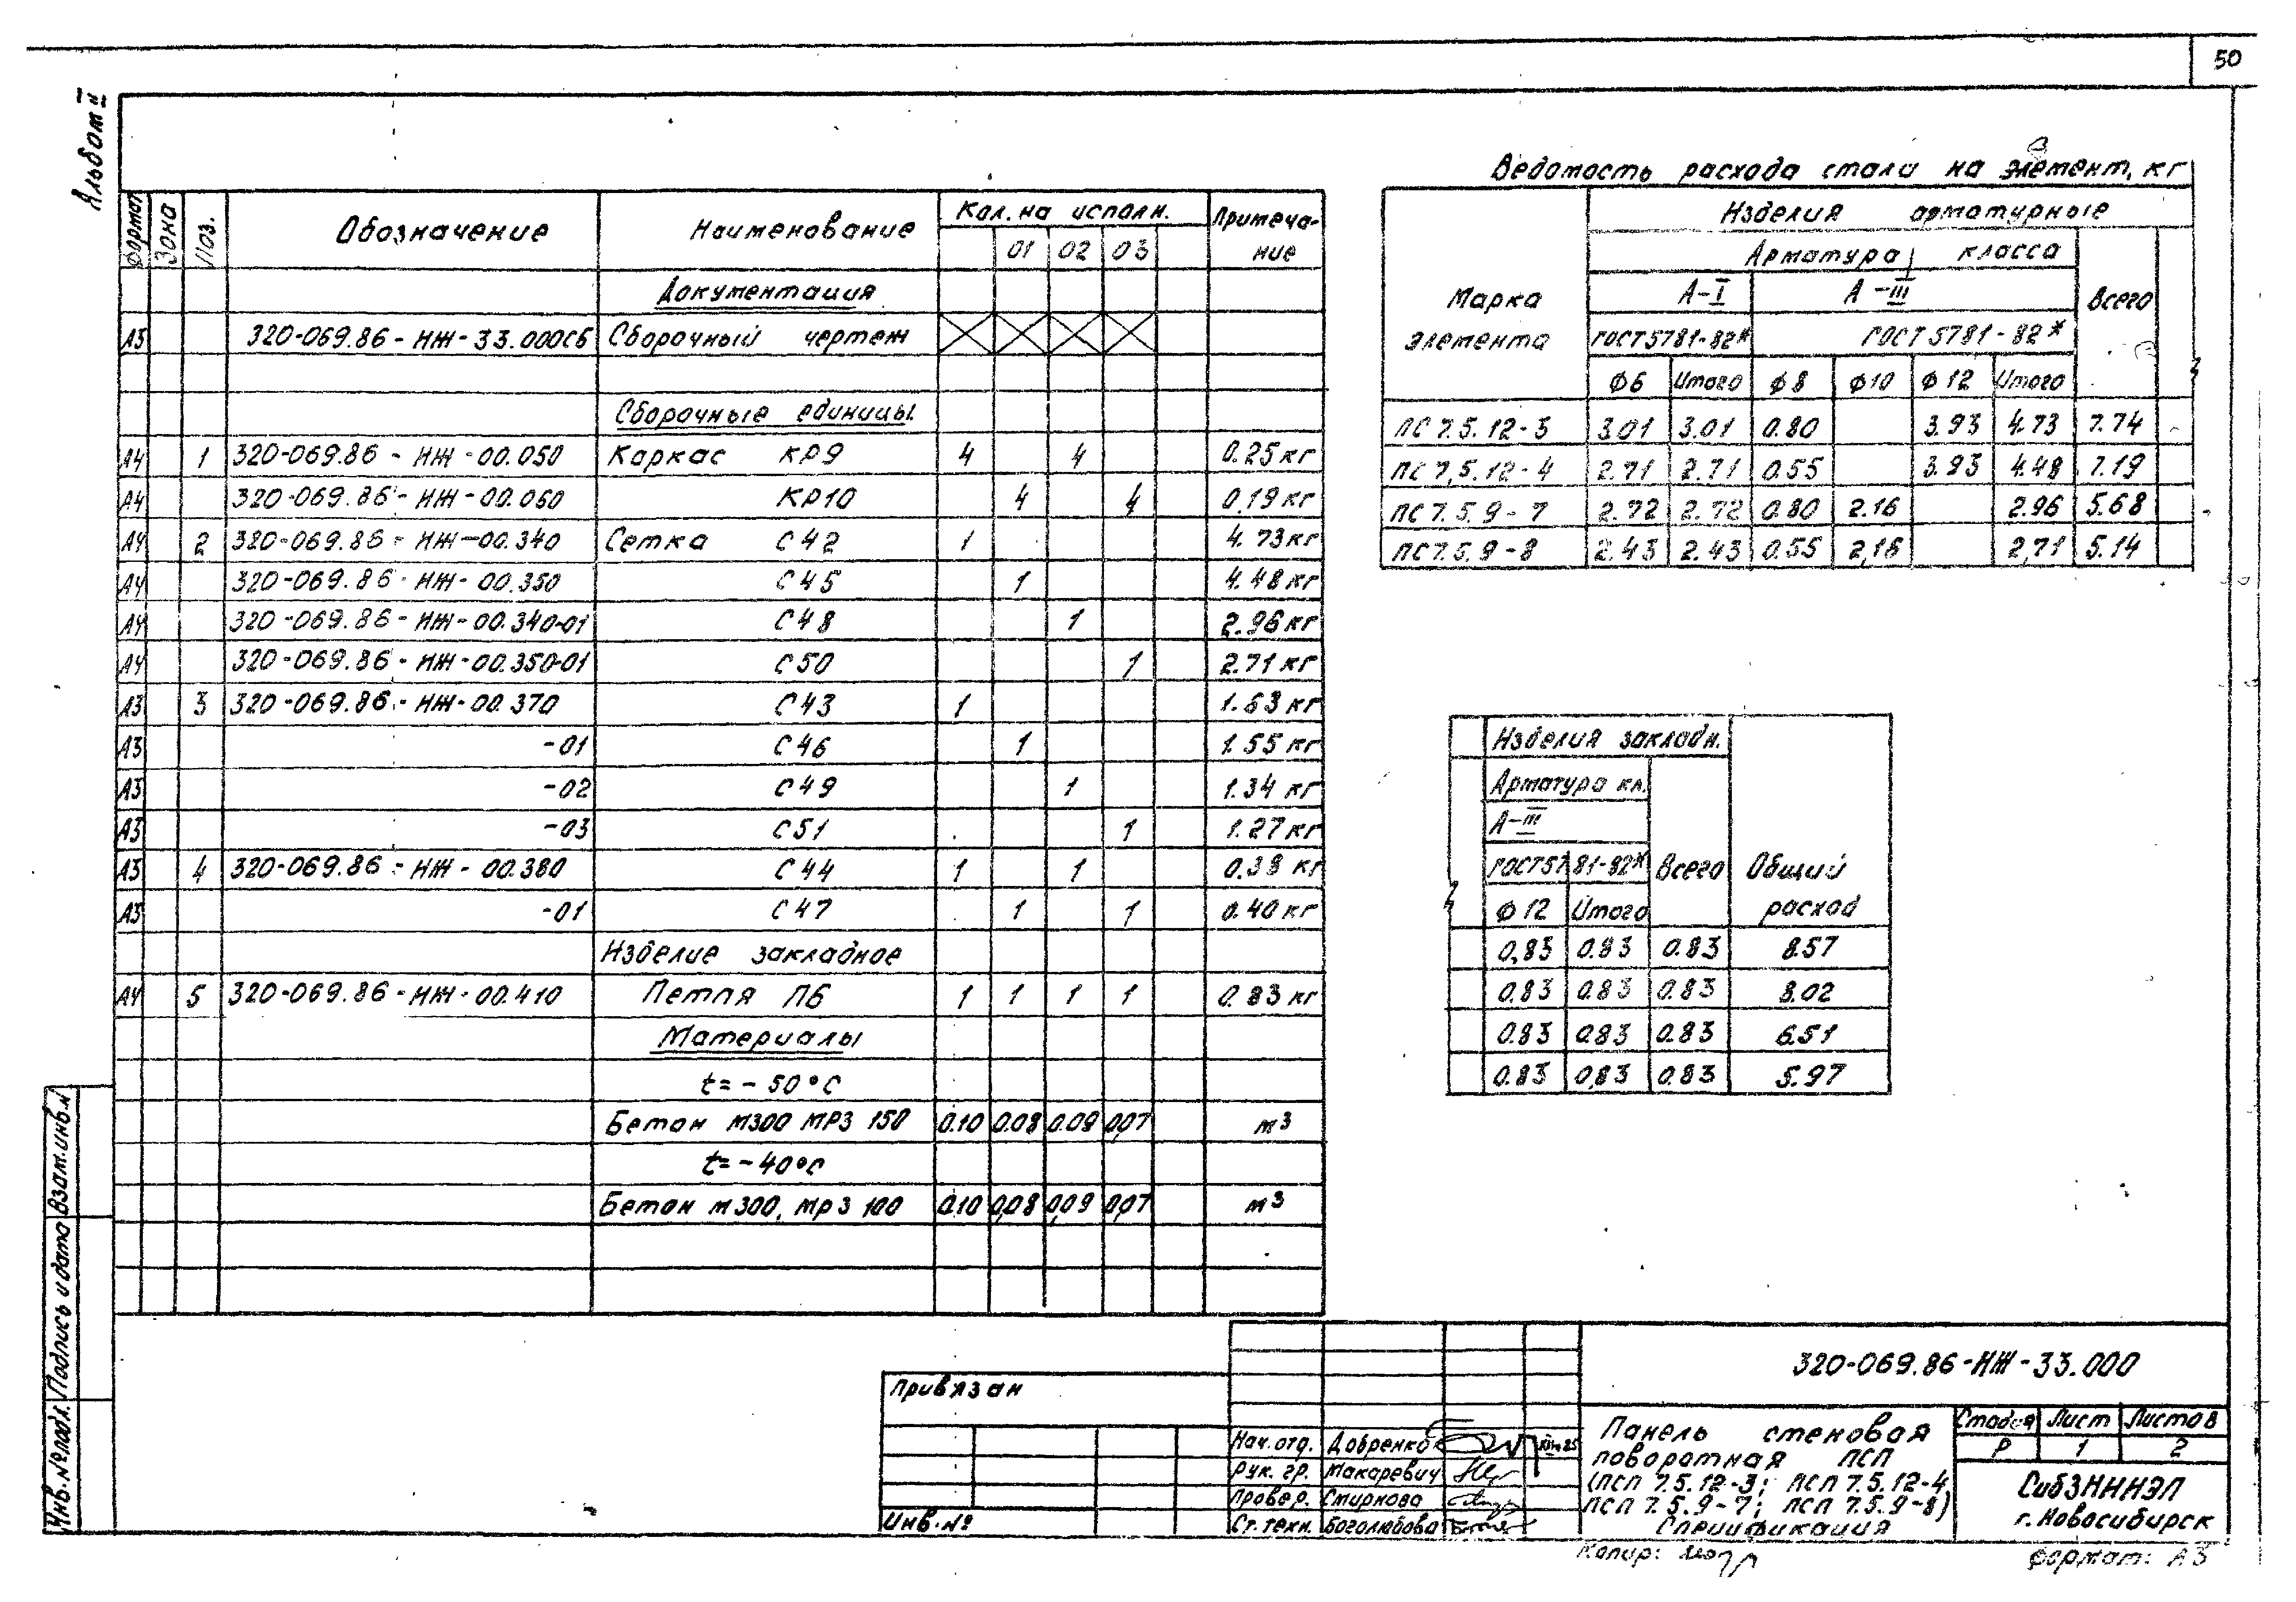 50
Альбом II
Формат Зона Поз. Обозначение Наименование Кол. на исполн. Примеча-ние
01 02 03
Документация
А3 320-069.86-НЖ-33.000СБ Сборочный чертеж
Сборочные единицы.
А4 1 320-069.86-НЖ-00.050 Каркас КР9 4 4 0.25 кг
А4 320-069.86-НЖ-00.060 КР10 4 4 0.19 кг
А4 2 320-069.86-НЖ-00.340 Сетка С42 1 4.73 кг
А4 320-069.86-НЖ-00.350 С45 1 4.48 кг
А4 320-069.86-НЖ-00.340-01 С48 1 2.96 кг
А4 320-069.86-НЖ-00.350-01 С50 1 2.71 кг
А3 3 320-069.86-НЖ-00.370 С43 1 1.63 кг
А3 -01 С46 1 1.55 кг
А3 -02 С49 1 1.34 кг
А3 -03 С51 1 1.27 кг
А3 4 320-069.86-НЖ-00.380 С44 1 1 0.38 кг
А3 -01 С47 1 1 0.40 кг
Изделие закладное
А4 5 320-069.86-НЖ-00.410 Петля П6 1 1 1 1 0.83 кг
Материалы
t=-50°С
Бетон М300 МРЗ 150 0.10 0.08 0.09 0,07 м³
t=-40°С
Бетон М300, МРЗ 100 0.10 0,08 0,09 0,07 м³
Ведомость расхода стали на элемент, кг
Марка элемента
Изделия арматурные
Арматура класса
А-I А-III Всего
ГОСТ5781-82* ГОСТ 5781-82*
ф6 Итого ф8 ф10 ф12 Итого
ПС 7.5.12-3 3.01 3.01 0.80 3.93 4.73 7.74
ПС 7,5.12-4 2.71 2.71 0.55 3.93 4.48 7.19
ПС 7.5.9-7 2.72 2.72 0.80 2.16 2.96 5.68
ПС7.5.9-8 2.43 2.43 0.55 2,16 2,71 5.14
Изделия закладн.
Арматура кл.
А-III
ГОСТ5781-82* Всего Общий расход
ф12 Итого
0,83 0.83 0.83 8.57
0.83 0.83 0.83 8.02
0.83 0.83 0.83 6.51
0.83 0,83 0.83 5.97
Инв. № подл. Подпись и дата Взам. инв. №
Привязан
Инв. №
320-069.86-НЖ-33.000
Нач. отд. Добренко
Рук. гр. Макаревич
Провер. Смирнова
Ст. техн. Боголюбова
Панель стеновая
поворотная ПСП
(ПСП 7.5.12-3; ПСП 7.5.12-4
ПСП 7.5.9-7; ПСП 7.5.9-8)
Спецификация
Стадия Лист Листов
Р 1 2
СибЗНИИЭП
г. Новосибирск
Копир:
Формат: А3